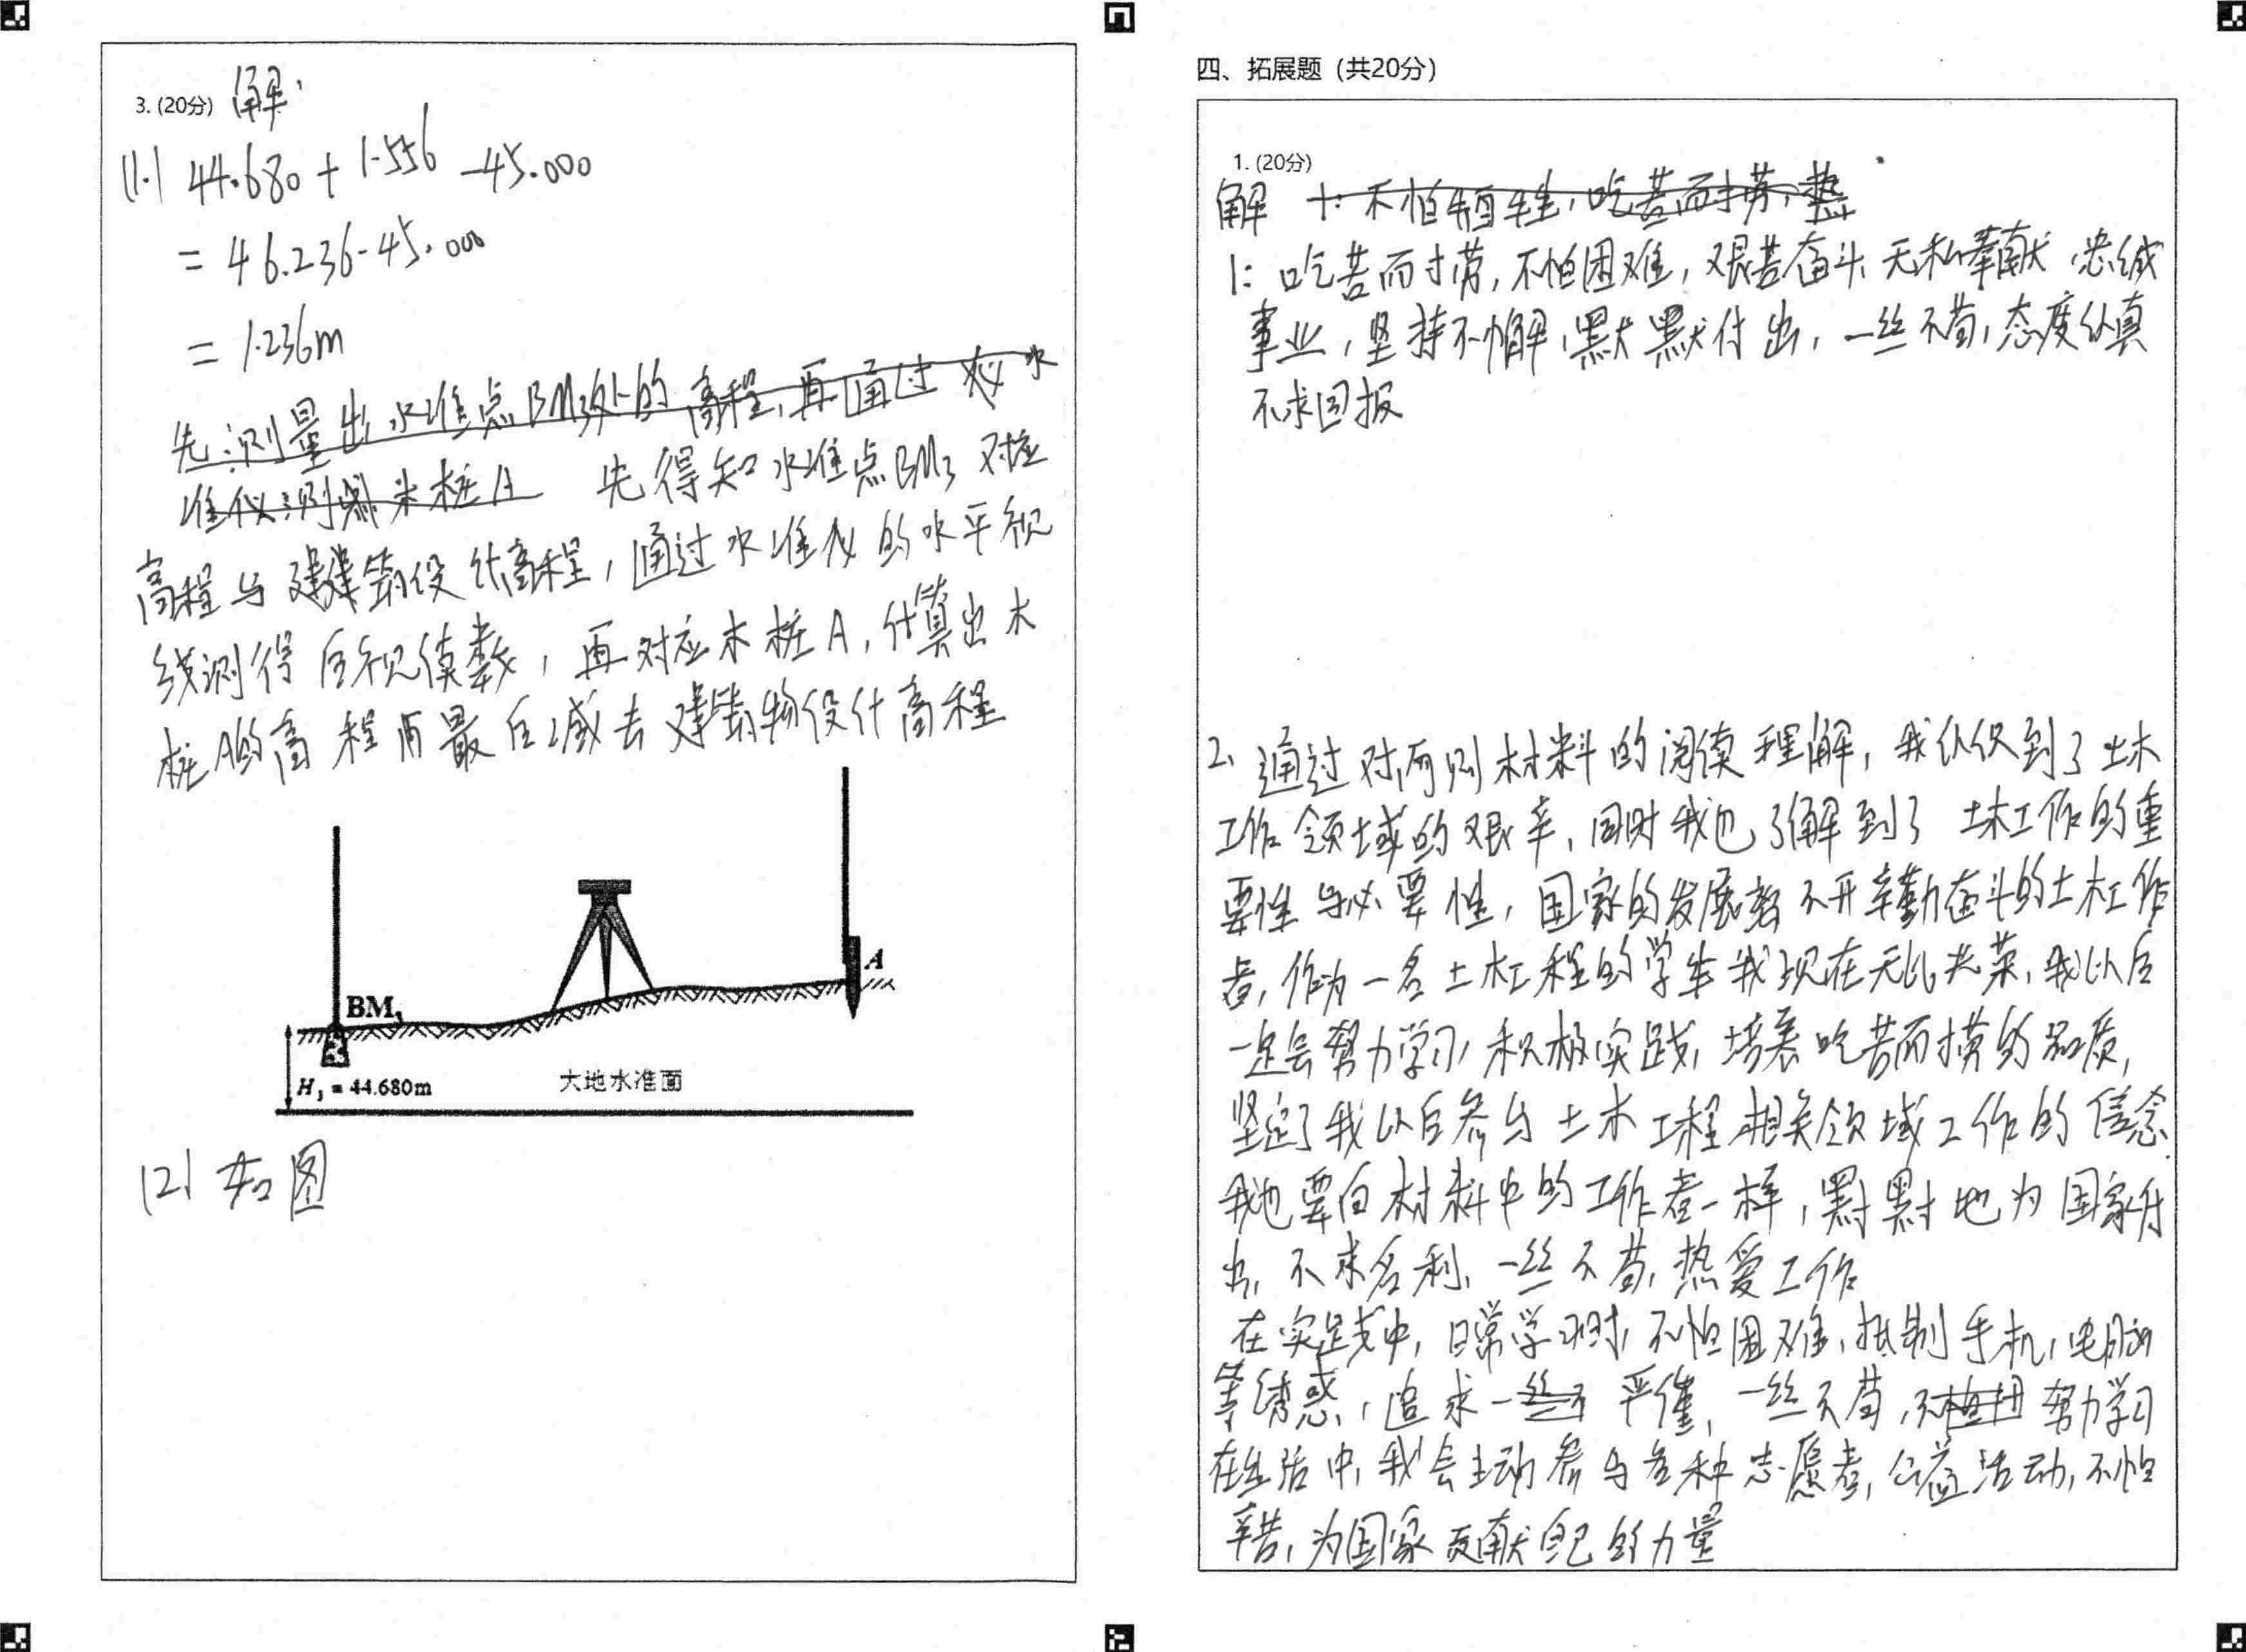 3. (20分) 解:
(1.) 44.680 + 1.556 - 45.000
= 46.236 - 45.000
= 1.236m
先测量出水准点BM3处的高程,再通过水
准仪测 木桩A 先得知水准点BM3 对应
高程与建筑设计高程,通过水准仪的水平视
线测得后视读数,再对应木桩A,计算出木
桩A的高程再最后减去建筑物设计高程
A
BM3
H3 = 44.680m 大地水准面
(2) 如图
四、拓展题 (共20分)
1. (20分)
解 1: 不怕牺牲,吃苦而捞,热
1: 吃苦而捞,不怕困难,艰苦奋斗,无私奉献,忠诚
事业,坚持不懈,默默付出,一丝不苟,态度认真
不求回报
2、通过对两则材料的阅读理解,我认识到了土木
工作领域的艰辛,同时我也了解到了土木工作的重
要性与必要性,国家的发展离不开辛勤奋斗的土木工作
者,作为一名土木工程的学生我现在无比光荣,我以后
一定会努力学习,积极实践,培养吃苦而捞的品质,
坚定了我以后参与土木工程相关领域工作的信念
我也要向材料中的工作者一样,默默地为国家付
出,不求名利,一丝不苟,热爱工作
在实践中,日常学习时,不怕困难,抵制手机,电脑
等诱惑,追求一丝不 严谨,一丝不苟,不 努力学习
在生活中,我会主动参与各种志愿者,公益活动,不怕
辛苦,为国家贡献自己的力量